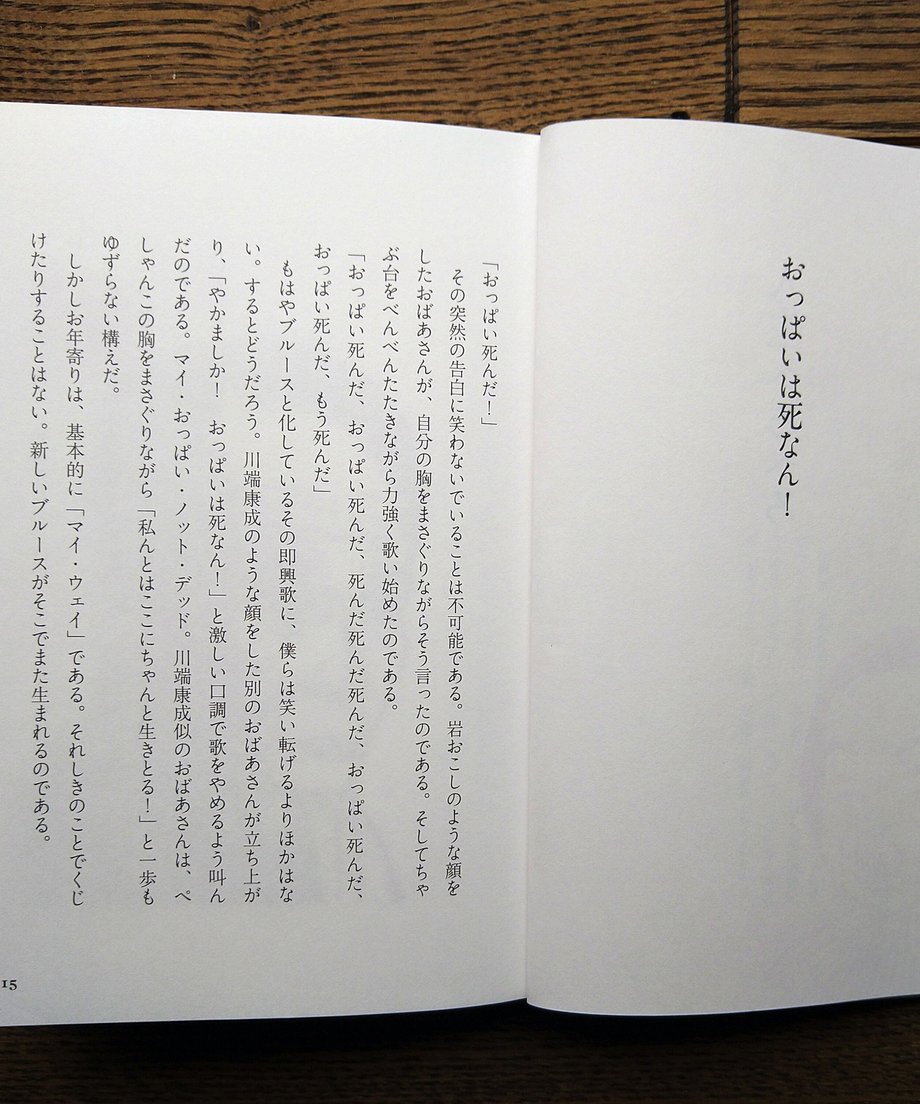 おっぱいは死なん！
「おっぱい死んだ！」
その突然の告白に笑わないでいることは不可能である。岩おこしのような顔を
したおばあさんが、自分の胸をまさぐりながらそう言ったのである。そしてちゃ
ぶ台をべんべんたたきながら力強く歌い始めたのである。
「おっぱい死んだ、おっぱい死んだ、死んだ死んだ死んだ、おっぱい死んだ、
おっぱい死んだ、もう死んだ」
もはやブルースと化しているその即興歌に、僕らは笑い転げるよりほかはな
い。するとどうだろう。川端康成のような顔をした別のおばあさんが立ち上が
り、「やかましか！　おっぱいは死なん！」と激しい口調で歌をやめるよう叫ん
だのである。マイ・おっぱい・ノット・デッド。川端康成似のおばあさんは、ぺ
しゃんこの胸をまさぐりながら「私んとはここにちゃんと生きとる！」と一歩も
ゆずらない構えだ。
しかしお年寄りは、基本的に「マイ・ウェイ」である。それしきのことでくじ
けたりすることはない。新しいブルースがそこでまた生まれるのである。
15